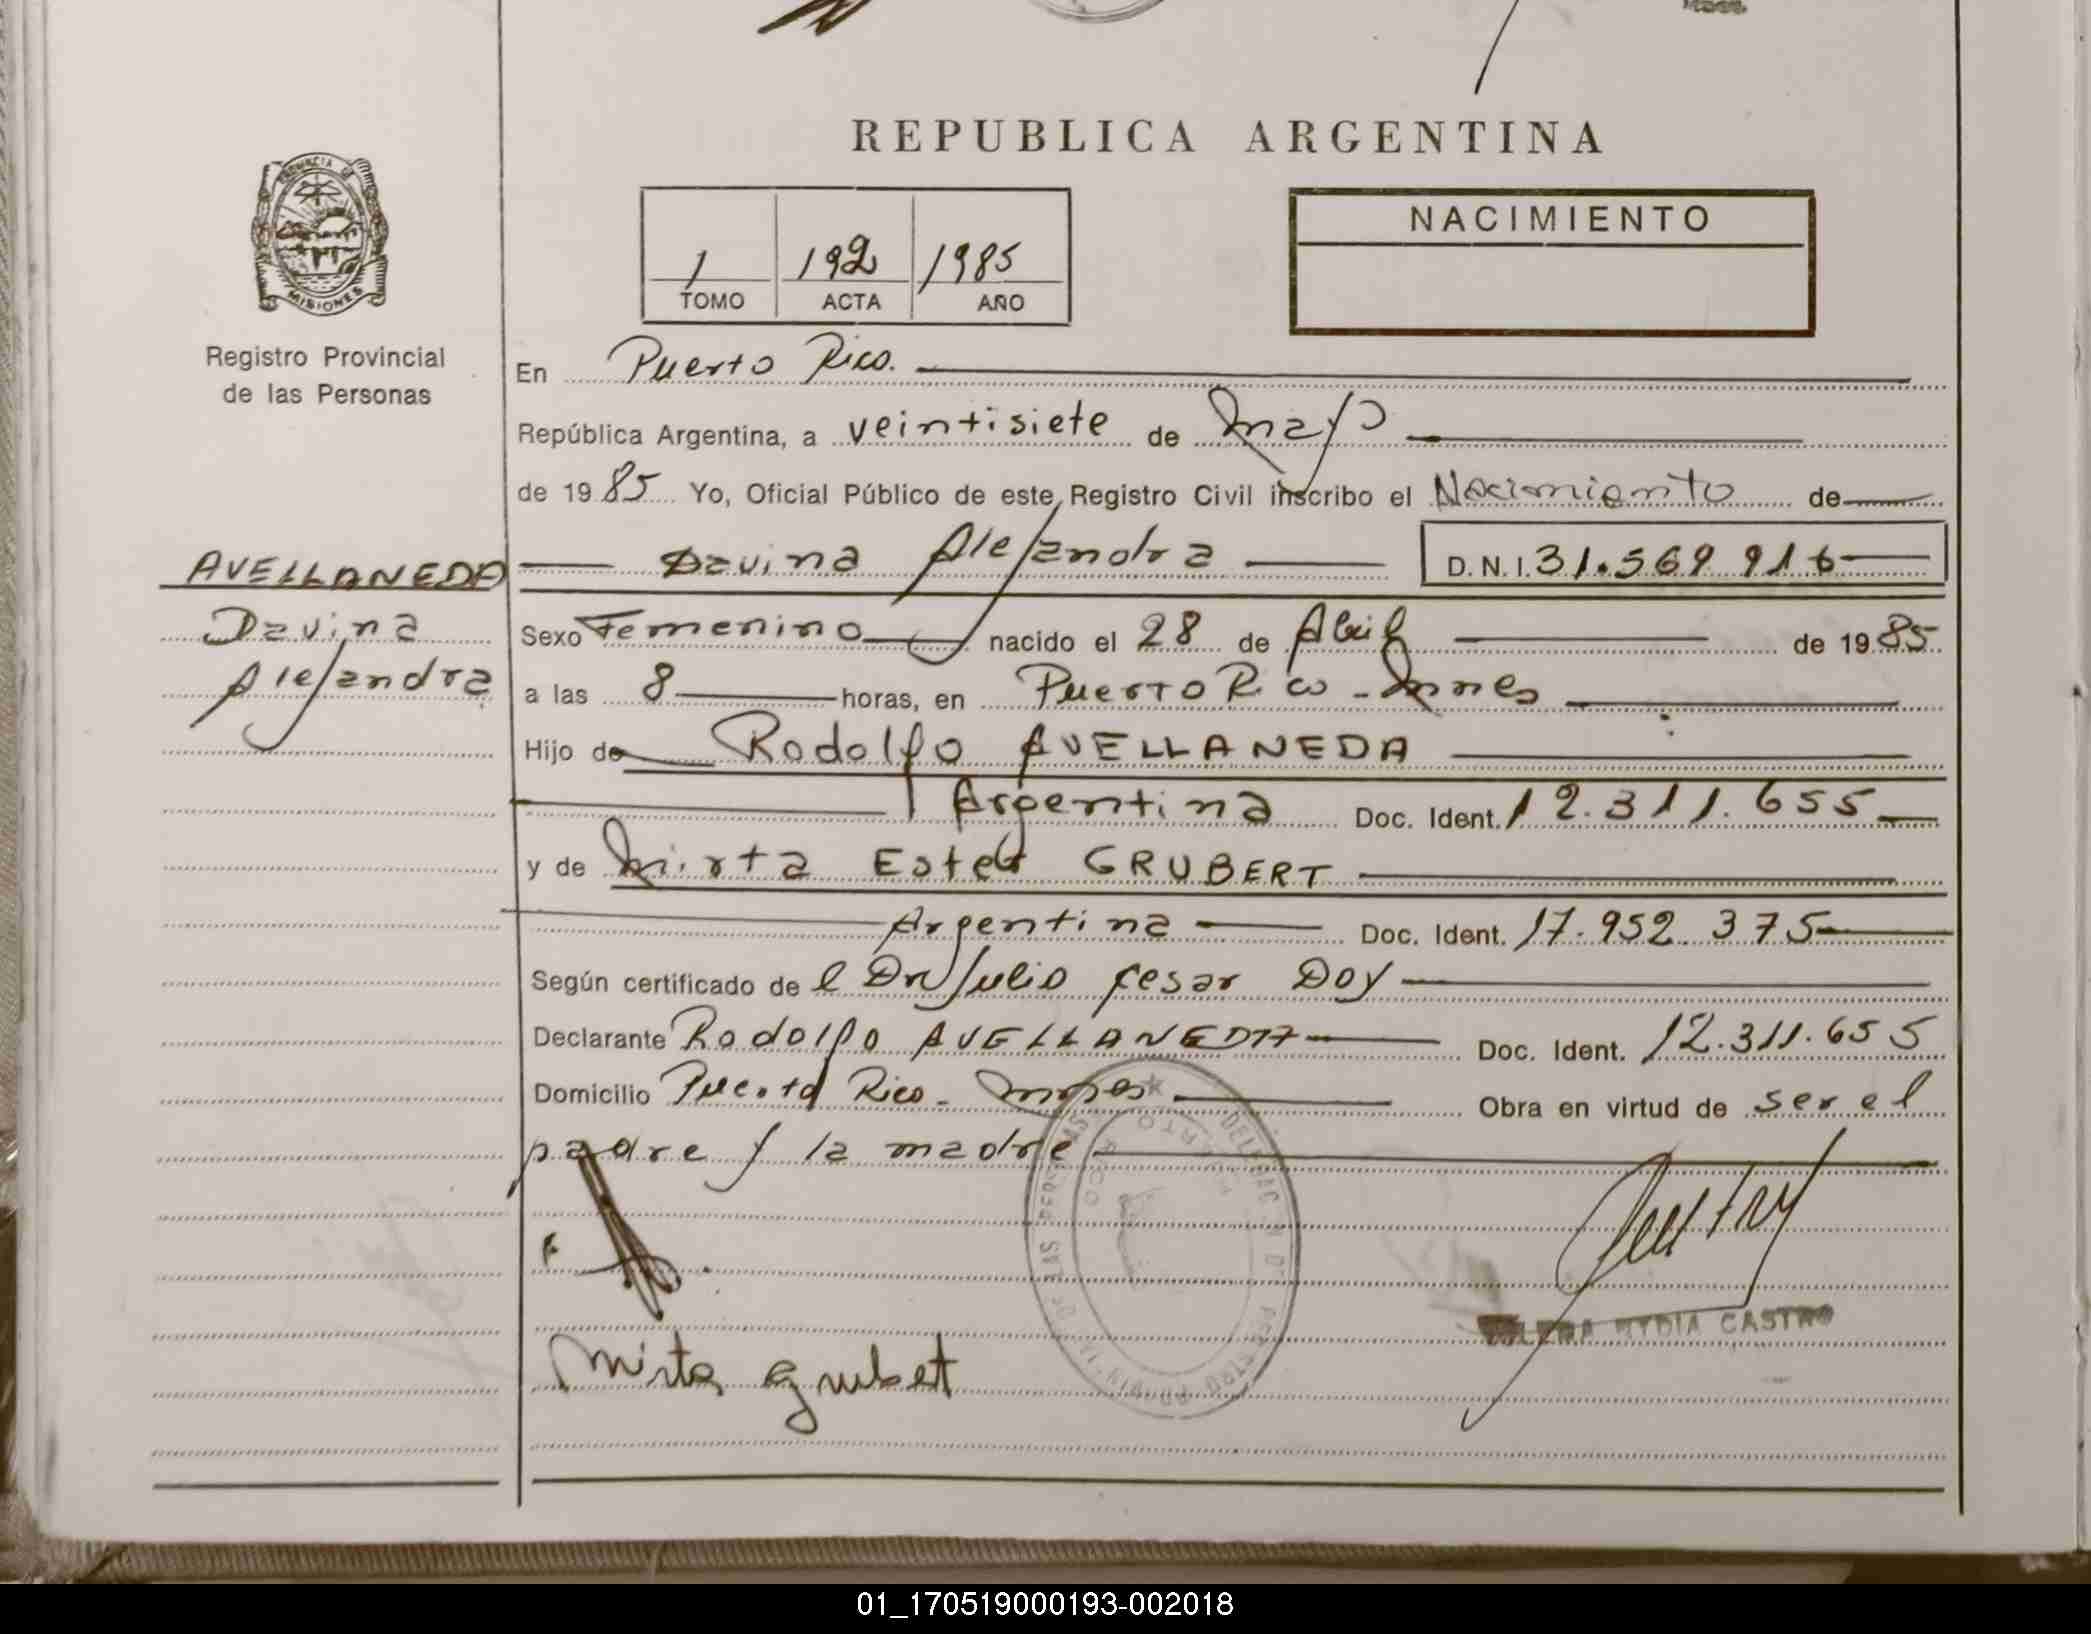 REPUBLICA ARGENTINA
PROVINCIA DE
MISIONES
Registro Provincial
de las Personas
1 192 1985
TOMO ACTA AÑO
NACIMIENTO
En Puerto Rico.
República Argentina, a veintisiete de Mayo
de 1985 Yo, Oficial Público de este Registro Civil inscribo el Nacimiento de
AVELLANEDA
Davina
Alejandra
Davina Alejandra D.N.I. 31.569 916
Sexo Femenino nacido el 28 de Abril de 1985
a las 8 horas, en Puerto Rico - Mnes
Hijo de Rodolfo AVELLANEDA
Argentina Doc. Ident. 12.311.655
y de Mirta Estela GRUBERT
Argentina Doc. Ident. 17.952.375
Según certificado de l Dr Julio Cesar Doy
Declarante Rodolfo AVELLANEDA Doc. Ident. 12.311.655
Domicilio Puerto Rico - Mnes Obra en virtud de ser el
padre y la madre
Mirta Grubert
CASTRO
01_170519000193-002018